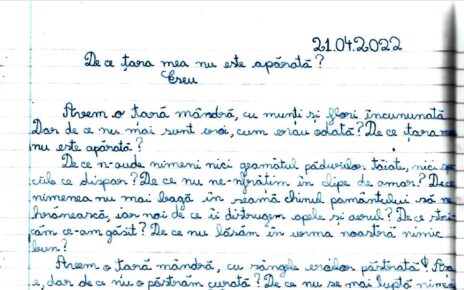 21.04.2022
De ce țara mea nu este apărată?
Eseu
Avem o țară mândră, cu munți și flori încununată
Dar de ce nu mai sunt eroi, cum erau odată? De ce țara mea
nu este apărată?
De ce n-aude nimeni nici geamătul pădurilor tăiate, nici
ce dispar? De ce nu ne-nfrățim în clipe de amar? De ce
nimenea nu mai bagă în seamă chinul pământului să ne
hrănească, iar noi de ce îi distrugem apele și aerul? De ce
ce-am găsit? De ce nu lăsăm în urma noastră nimic
bun?
Avem o țară mândră, cu sângele eroilor păstrată!
e, dar de ce n-o păstrăm curată? De ce nu se mai luptă nimeni